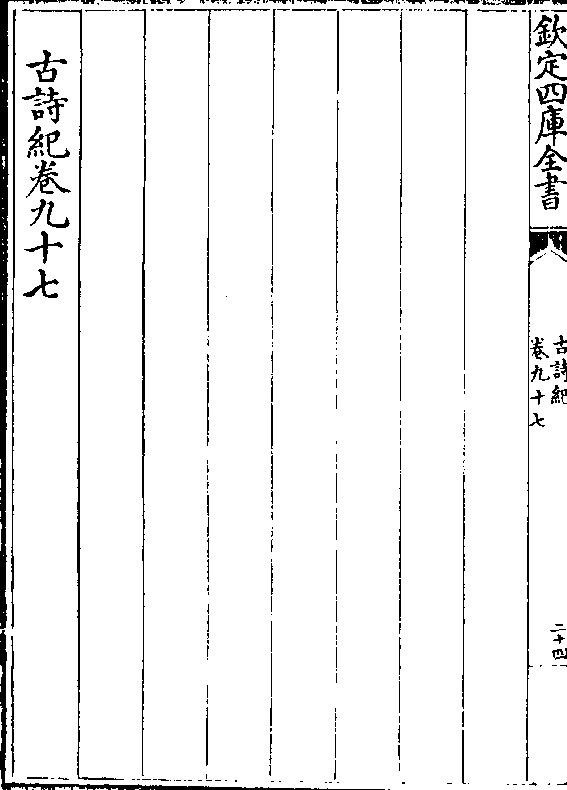 欽定四庫全書
古詩紀
卷九十七
二十四
古詩紀卷九十七